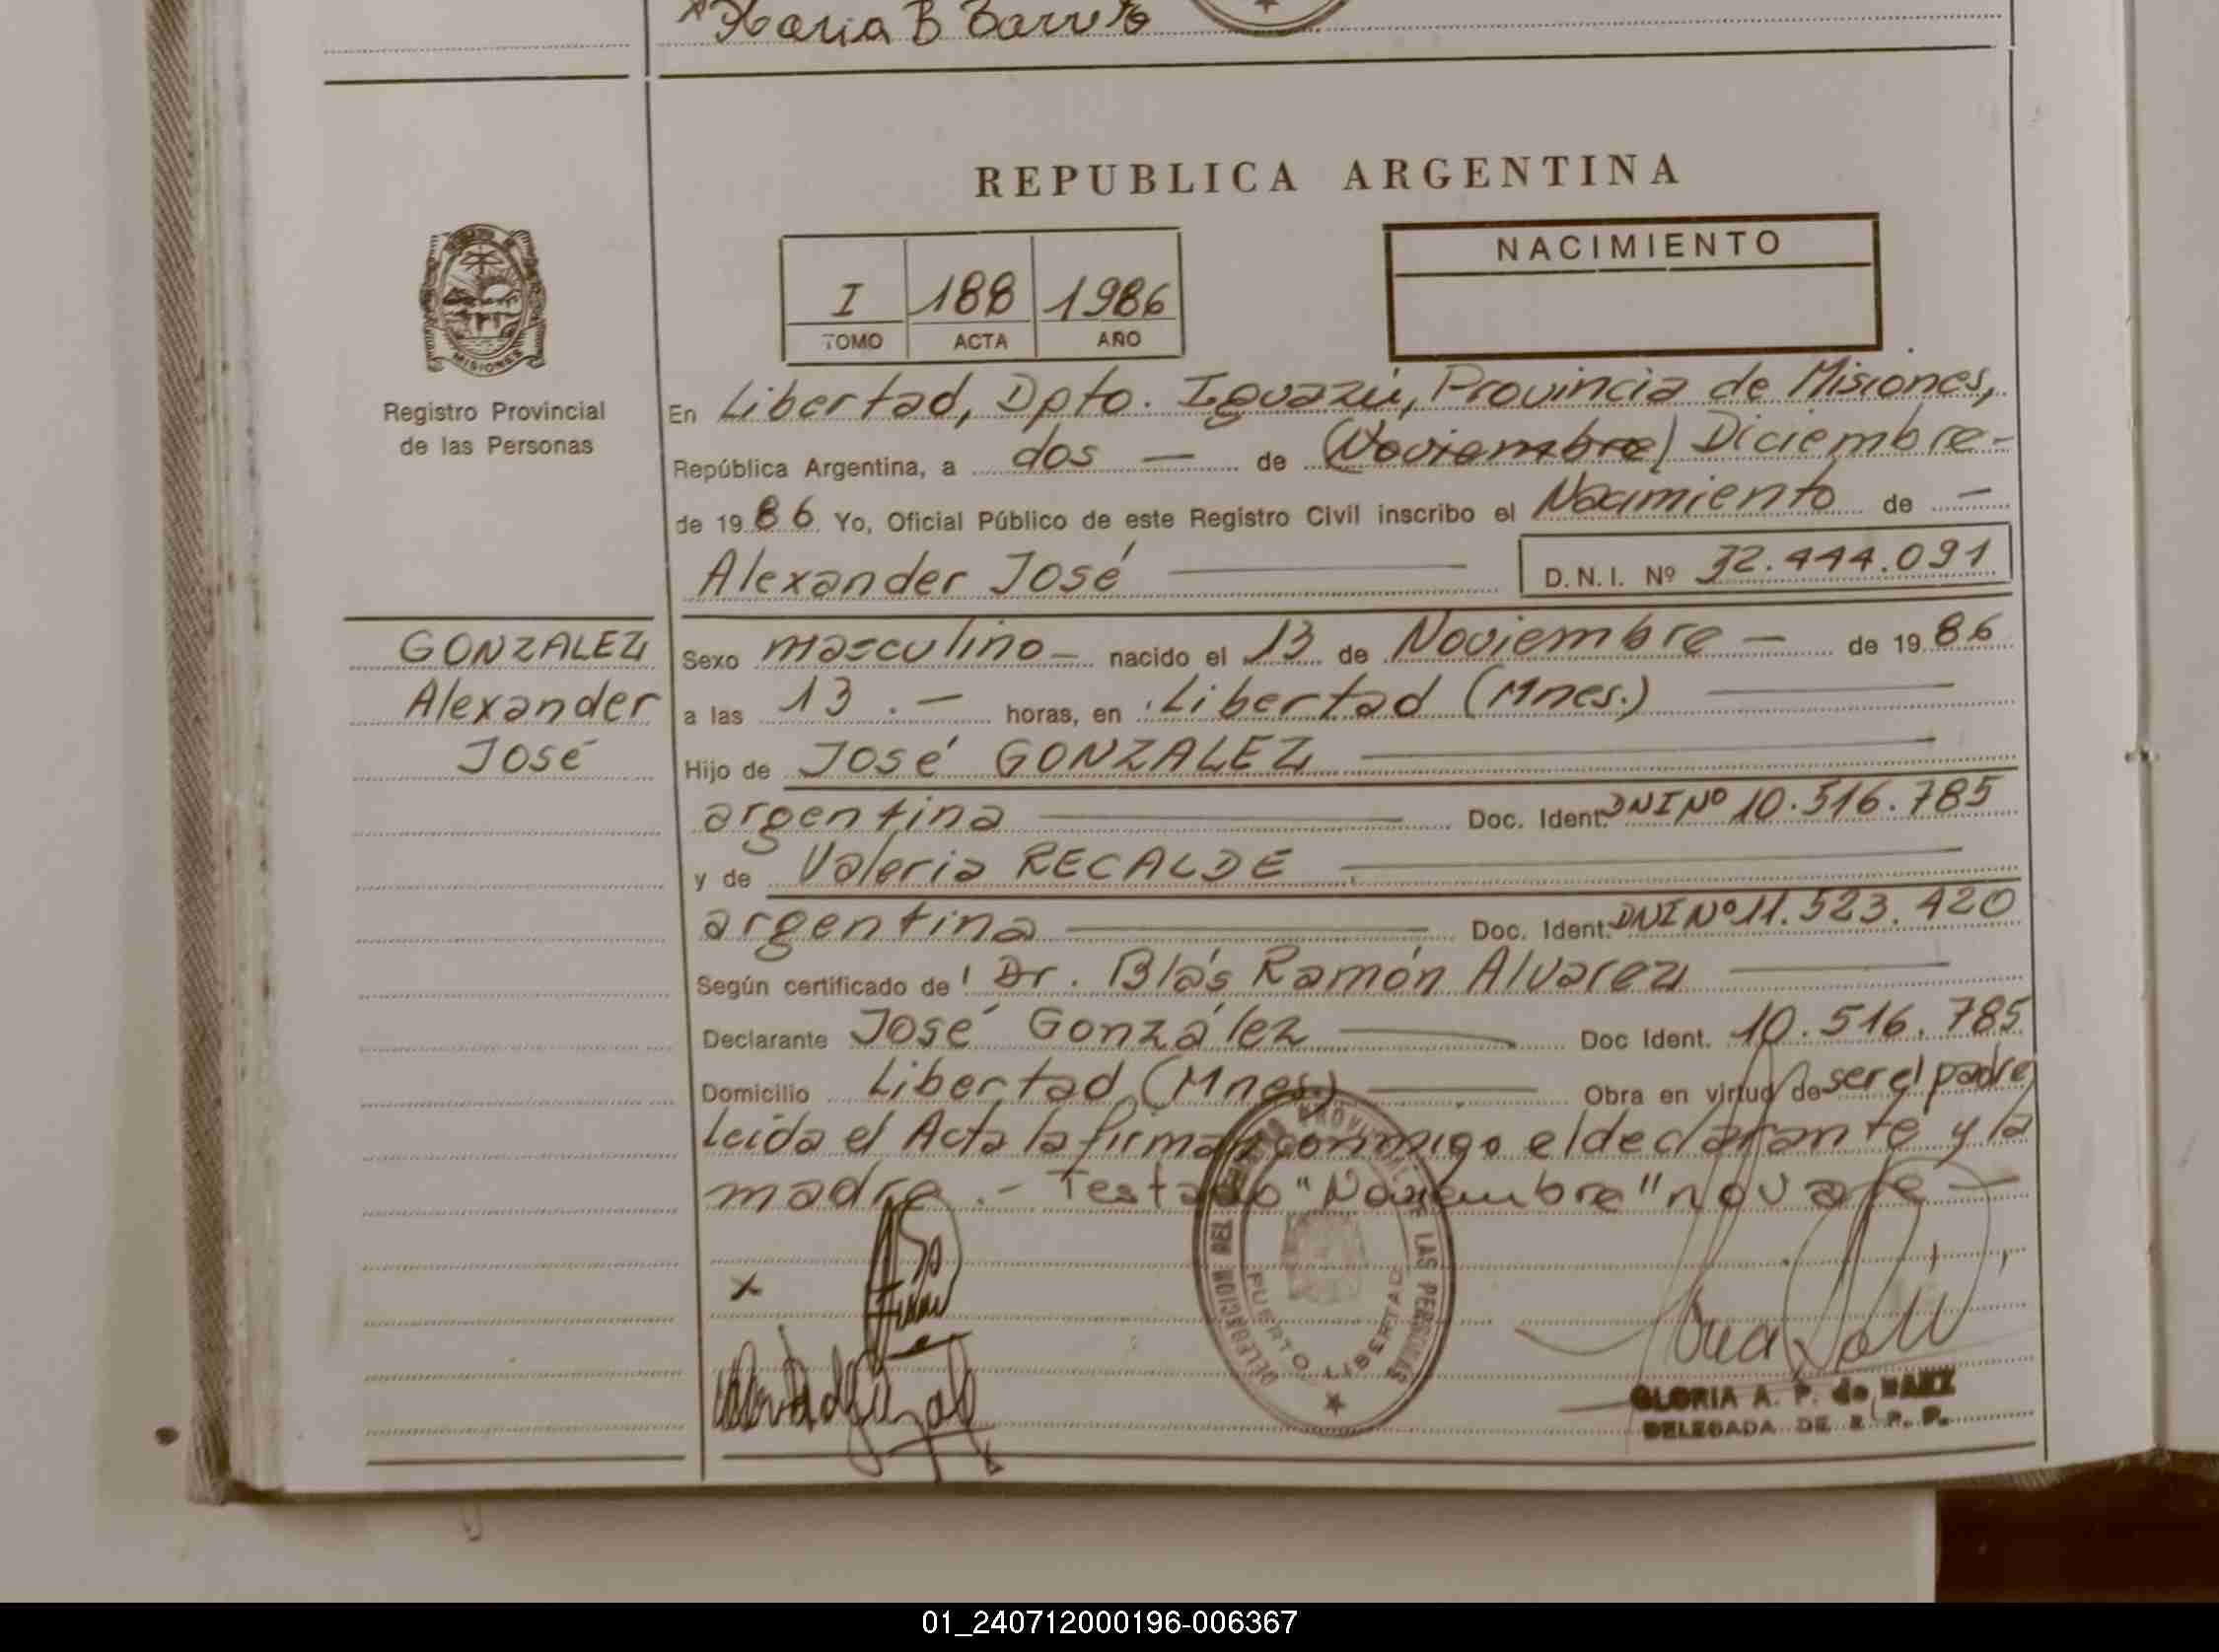 Maria B Barreto
REPUBLICA ARGENTINA
I 188 1986
TOMO ACTA AÑO
NACIMIENTO
MISIONES
Registro Provincial
de las Personas
En Libertad, Dpto. Iguazú, Provincia de Misiones,
República Argentina, a dos — de (Noviembre) Diciembre-
de 1986 Yo, Oficial Público de este Registro Civil inscribo el Nacimiento de —
Alexander José
D.N.I. Nº 32.444.091
GONZALEZ
Alexander
José
Sexo masculino — nacido el 13 de Noviembre — de 1986
a las 13.— horas, en Libertad (Mnes.)
Hijo de José GONZALEZ
argentina Doc. Ident. DNI Nº 10.516.785
y de Valeria RECALDE
argentina Doc. Ident. DNI Nº 11.523.420
Según certificado de Dr. Blás Ramón Alvarez
Declarante José González Doc Ident. 10.516.785
Domicilio Libertad (Mnes) Obra en virtud de ser el padre
Leida el Acta la firman conmigo el declarante y la
madre.- Testado "Noviembre" no vale —
x
DELEGACION DEL REGISTRO PROVINCIAL DE LAS PERSONAS
PUERTO LIBERTAD
GLORIA A. P. de BAEZ
DELEGADA DE R. P. P.
01_240712000196-006367